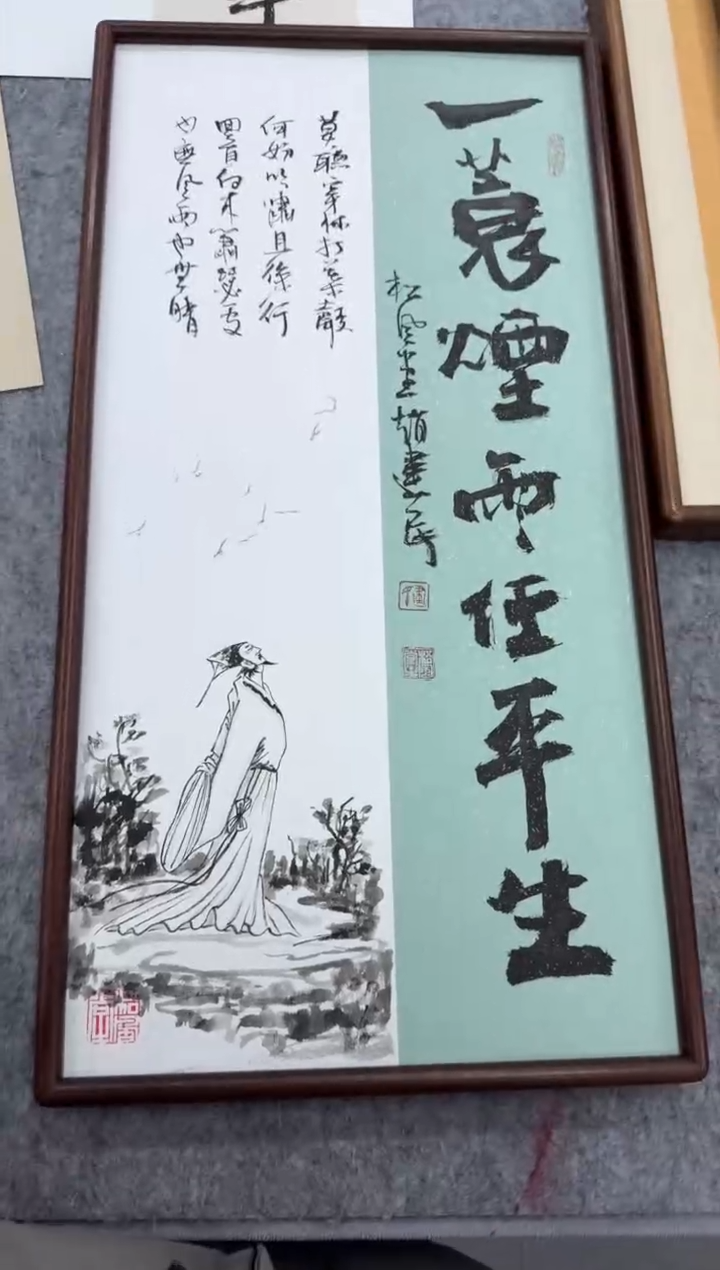 一蓑煙雨任平生
松風堂趙民
莫聽穿林打葉聲
何妨吟嘯且徐行
回首向來蕭瑟處
也無風雨也無晴